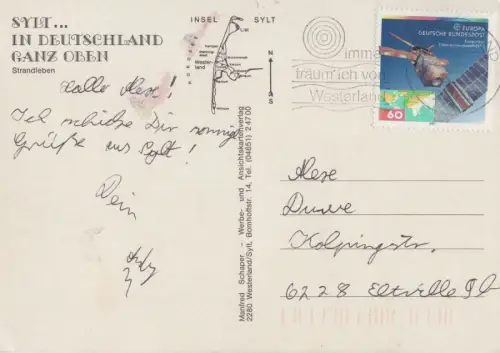 SYLT...
IN DEUTSCHLAND
GANZ OBEN
Strandleben
Hallo Alexe!
Ich schicke Dir sonnige
Grüße aus Sylt!
Dein
INSEL SYLT
List
Kampen
Wester-
land
N
S
Manfred Schaper - Werbe- und Ansichtskartenverlag
2280 Westerland/Sylt, Bomhoffstr. 14, Tel. (04651) 2 47 00
imme
träum' ich von
Westerland
EUROPA
DEUTSCHE BUNDESPOST
60
Alexe
Duwe
Kolpingstr.
6228 Eltville